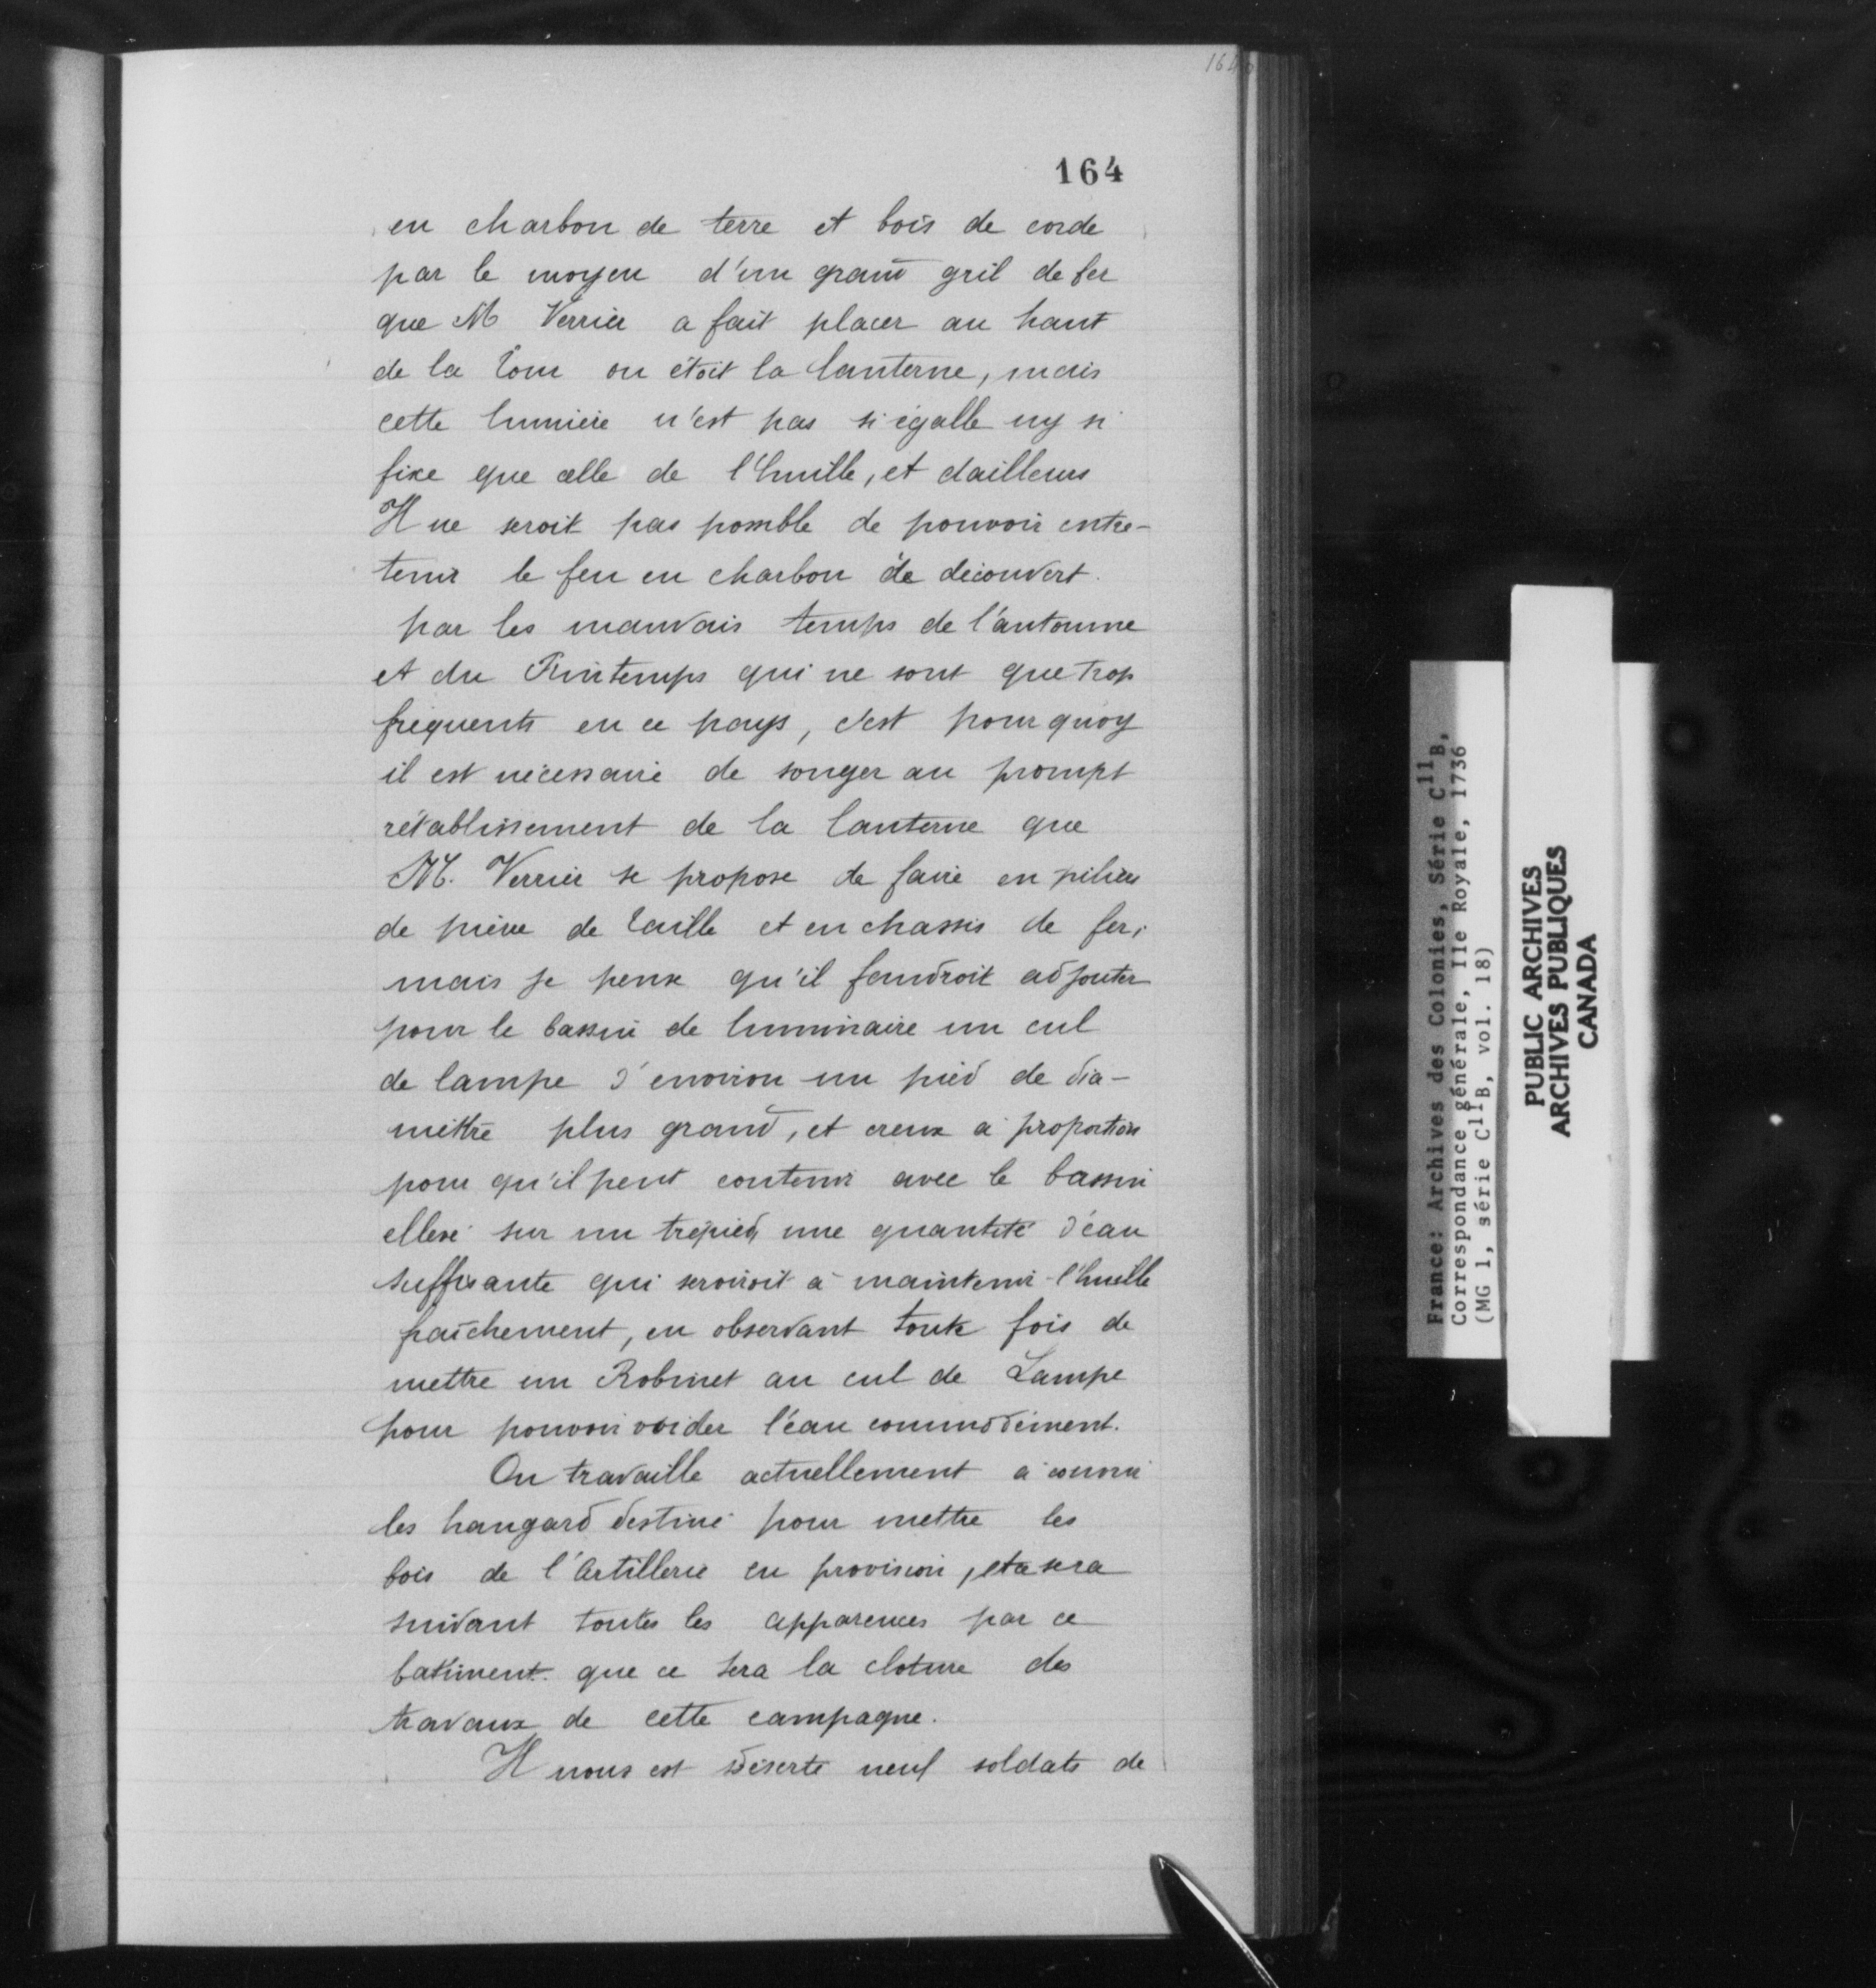 164
en charbon de terre et bois de corde
par le moyen d'un grand gril de fer
que M Verrier a fait placer au haut
de la Tour ou étoit la lanterne, mais
cette lumiere n'est pas si égalle ny si
fixe que celle de l'huille, et dailleurs
Il ne seroit pas possible de pouvoir entre-
tenir le feu en charbon de découvert.
par les mauvais temps de l'automne
et du Printemps qui ne sont que trop
fréquents en ce pays, c'est pourquoy
il est nécessaire de songer au prompt
rétablissement de la lanterne que
M. Verrier se propose de faire en piliers
de pierre de taille et en chassis de fer,
mais je pense qu'il faudroit adjouter
pour le bassin de luminaire un cul
de lampe d'environ un pied de dia-
mettre plus grand, et creux a proportion
pour qu'il peut contenir avec le bassin
ellevé sur un trépied, une quantité d'eau
suffisante qui serviroit à maintenir l'huille
fraîchement, en observant toute fois de
mettre un Robinet au cul de Lampe
pour pouvoir voider l'éau commodément.
On travaille actuellement a couvrir
les hangard destiné pour mettre les
bois de l'artillerie en provision, et ce sera
suivant toutes les apparences par ce
batiment que ce sera la cloture des
travaux de cette campagne.
Il nous est déserté neuf soldats de
France: Archives des Colonies, Série C11B,
Correspondance générale, Ile Royale, 1736
(MG 1, série C11B, vol. 18)
PUBLIC ARCHIVES
ARCHIVES PUBLIQUES
CANADA